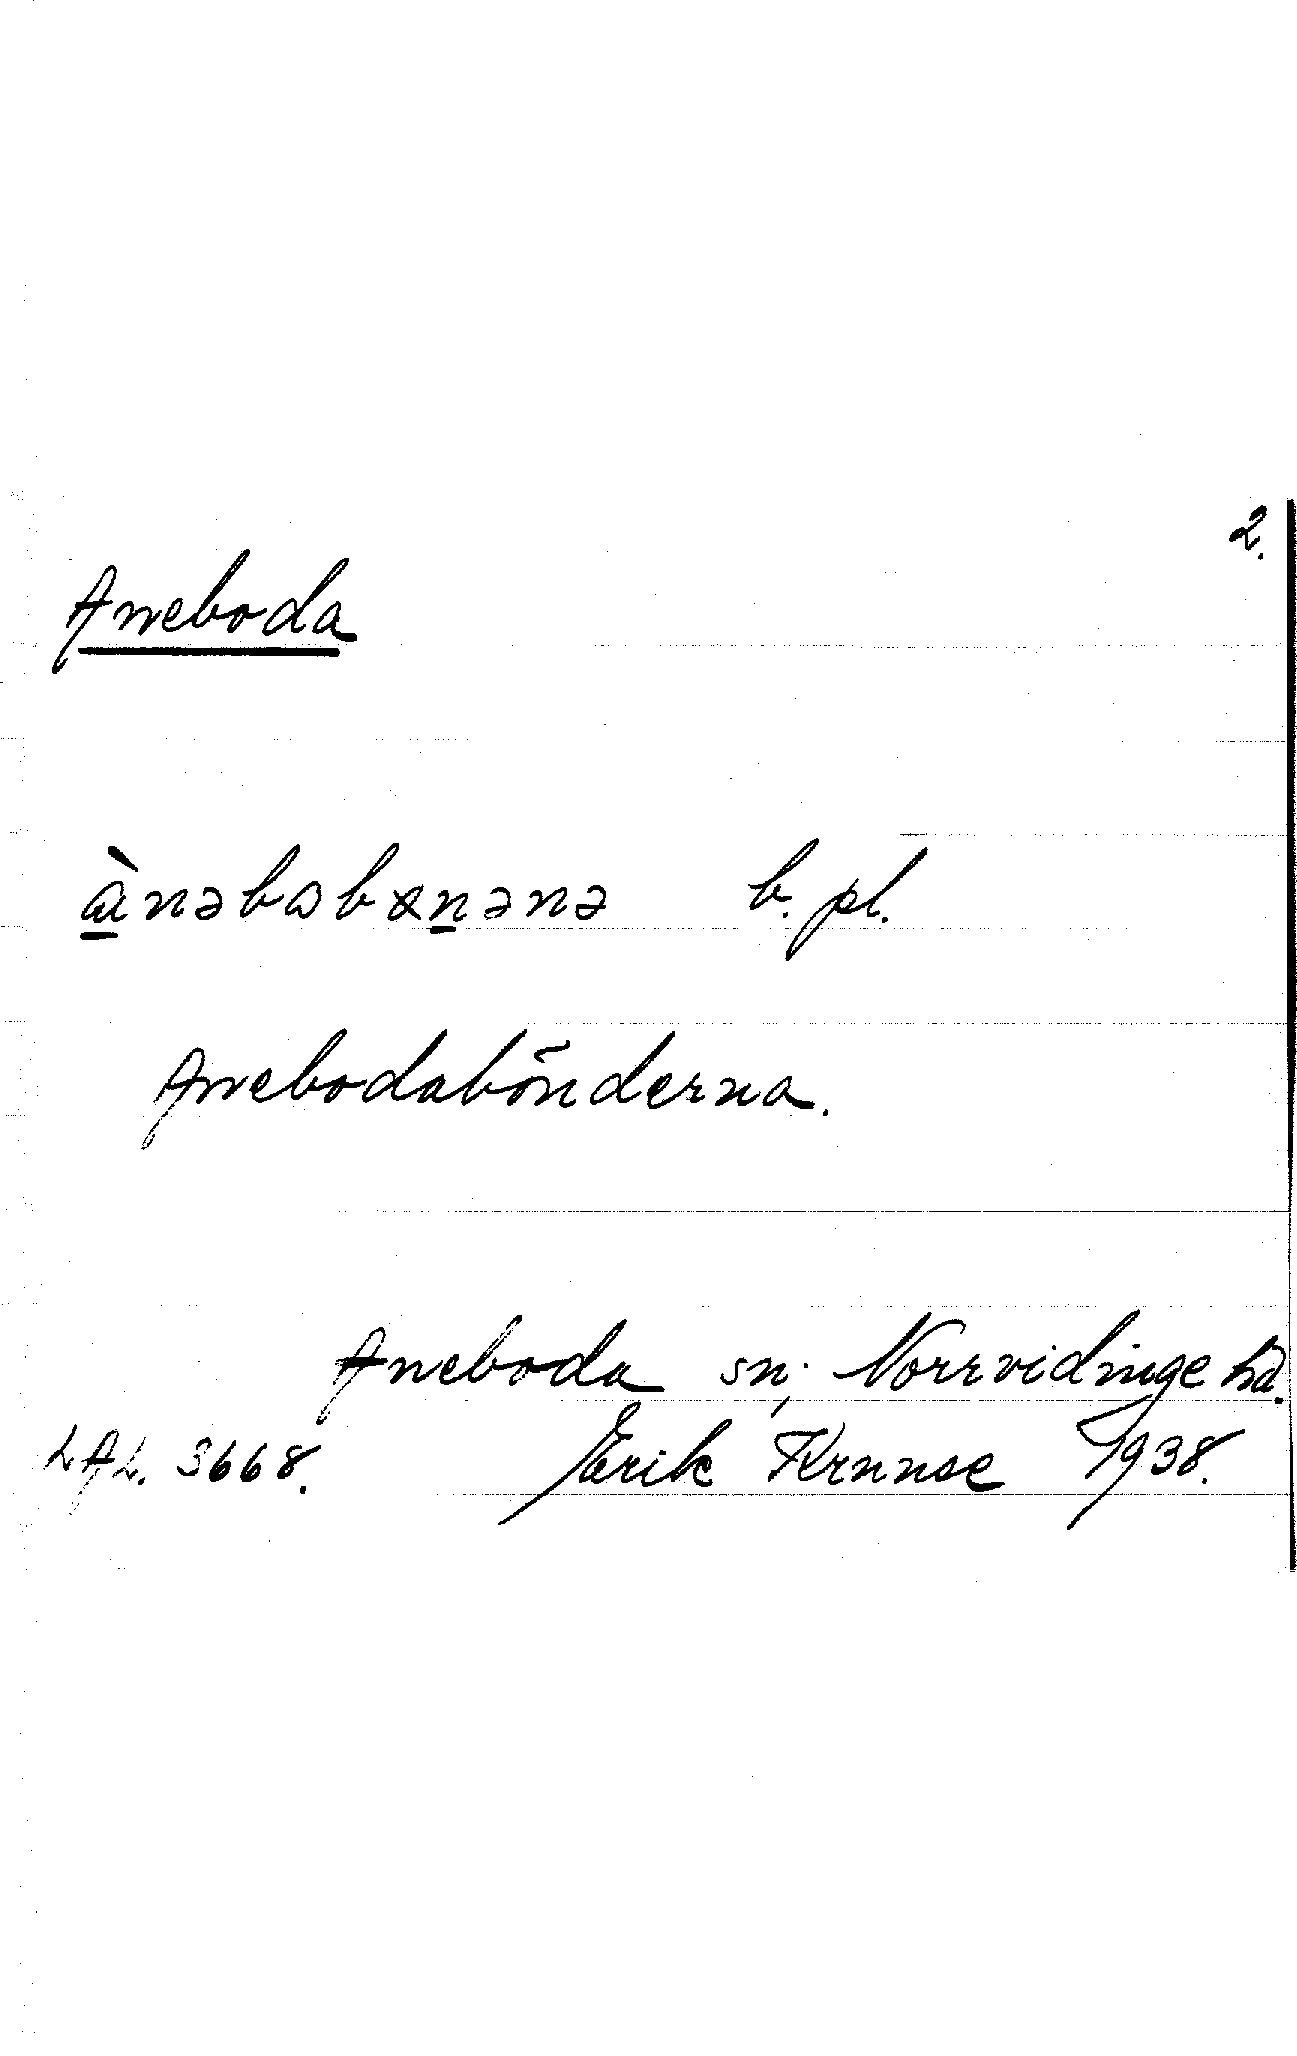 2.
Aneboda
ànəbɷbɞnənə b. pl.
Anebodabönderna.
Aneboda sn; Norrvidinge hd.
LAL. 3668. Erik Kruuse 1938.